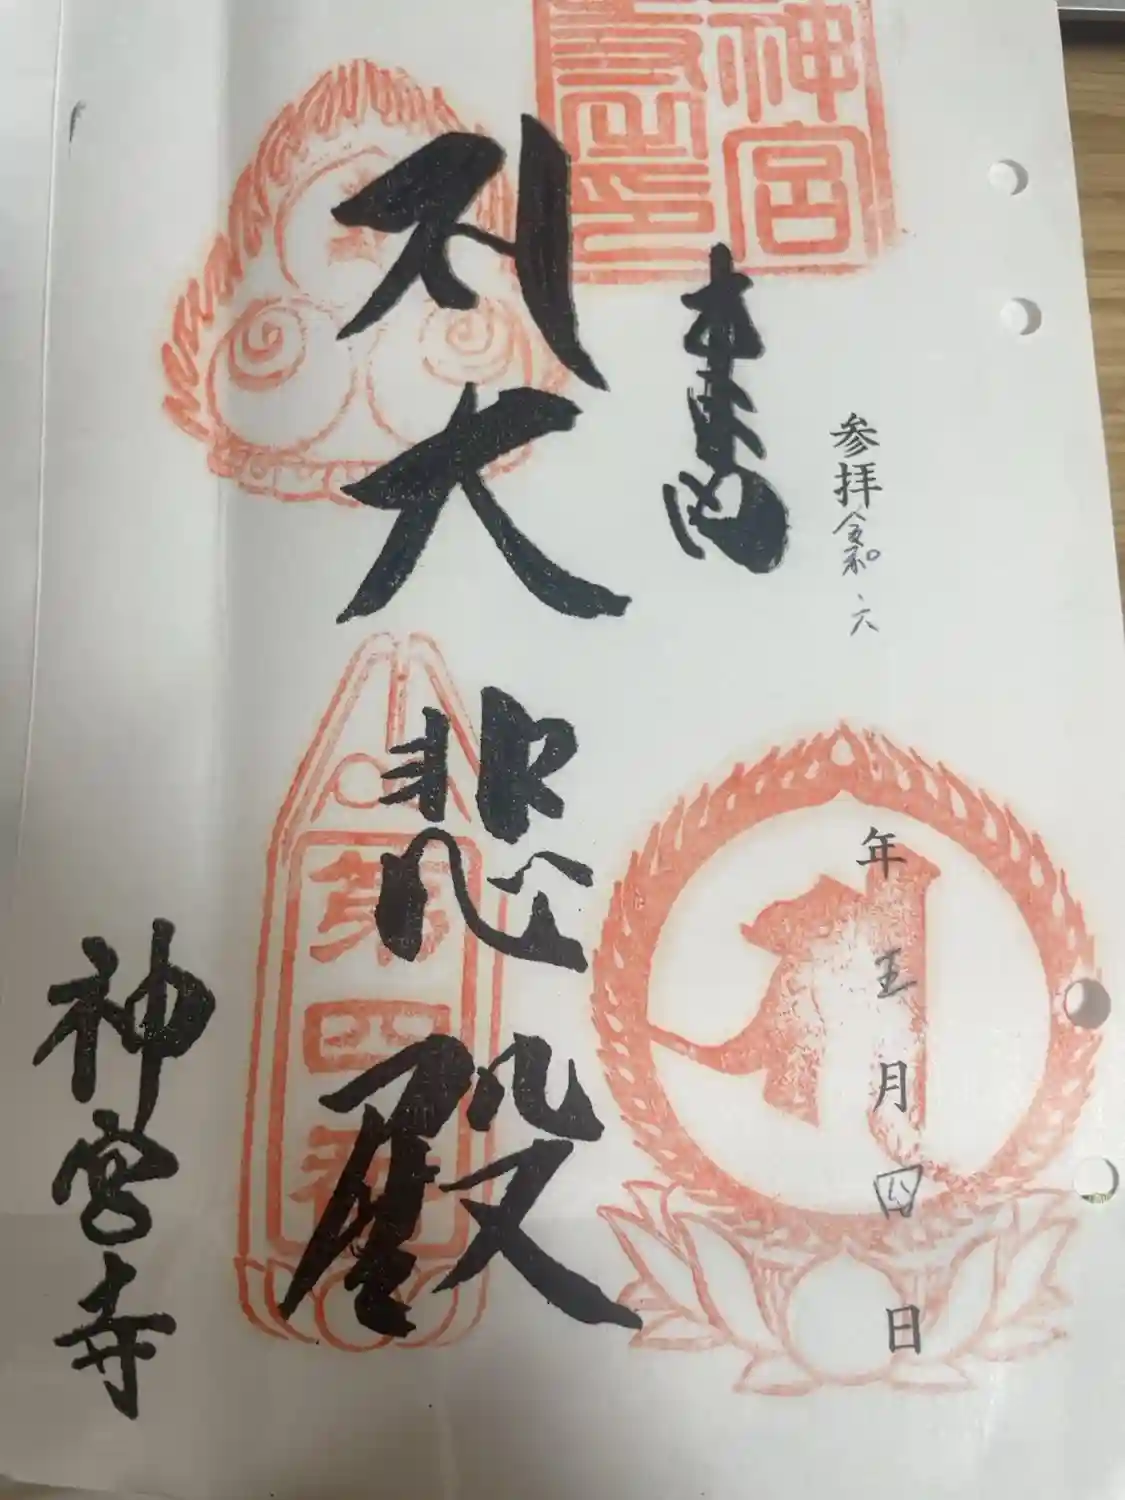 参拝令和 六年 五月 四日
奉拝
大悲殿
神宮寺
神宮
寺之印
第四番